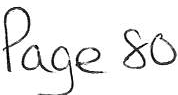 Page 80